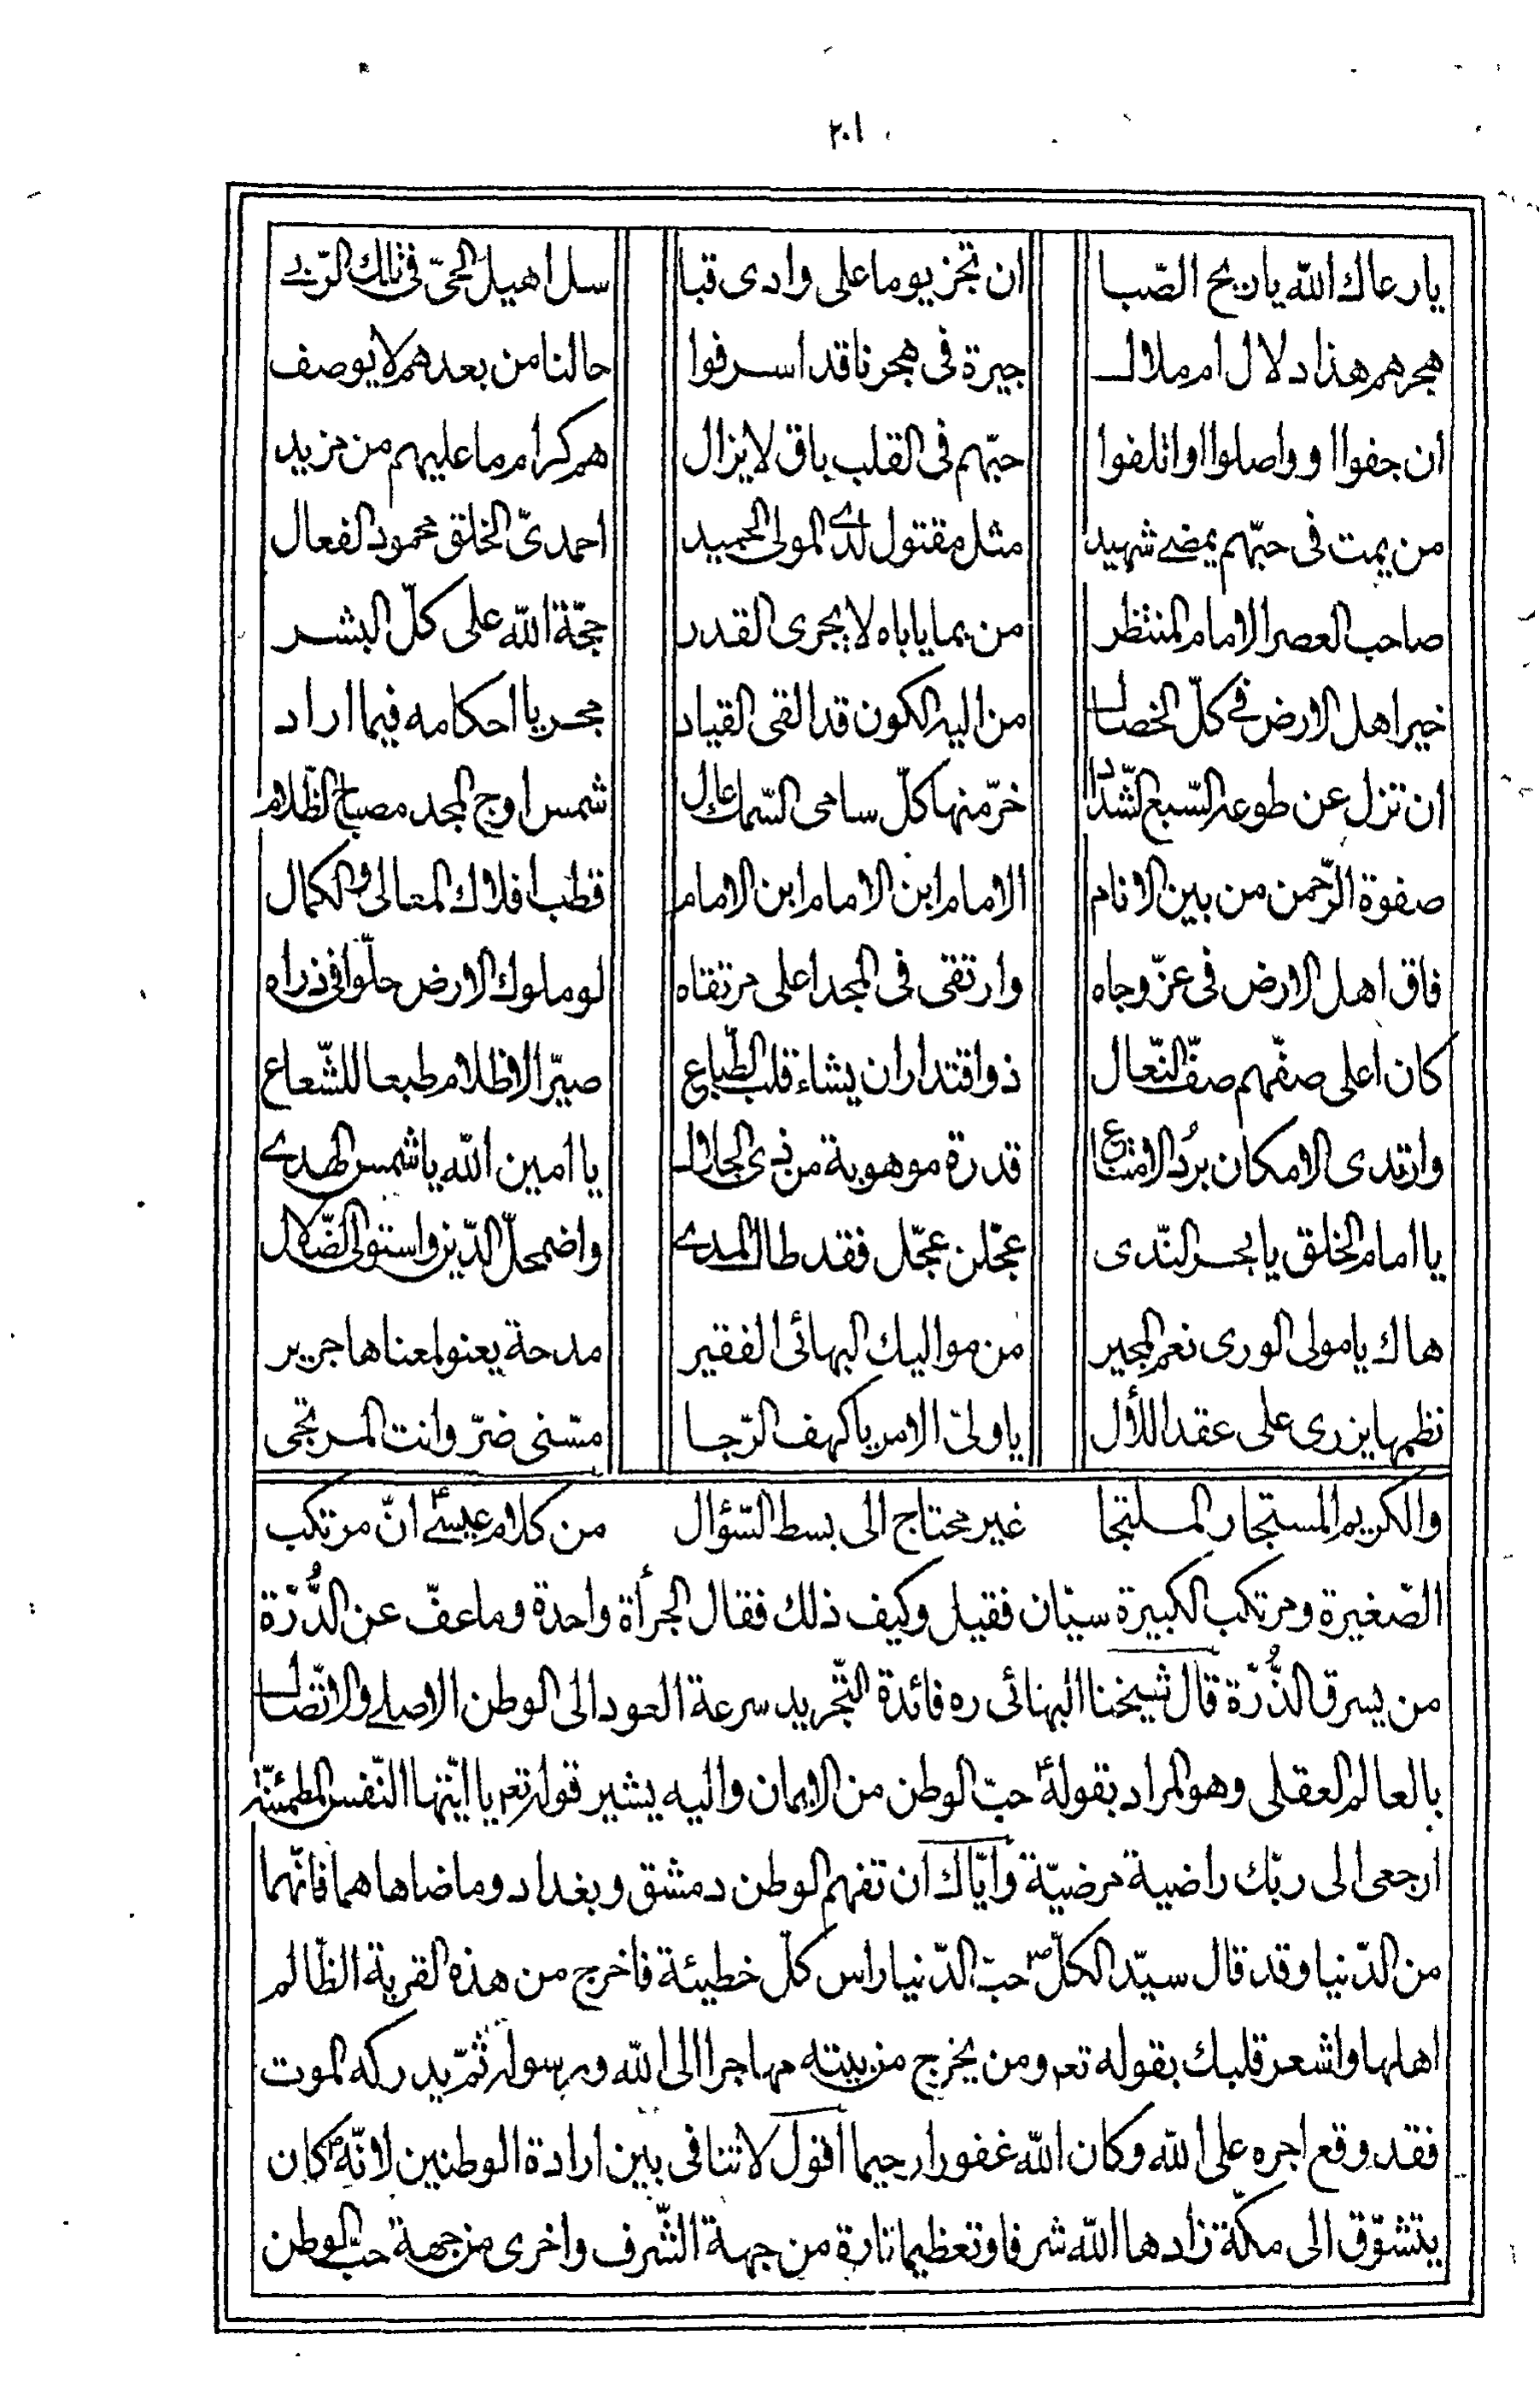 ٢٠١
يا رعاك الله يا ريح الصّبا ان تجز يوما على وادى قبا سل اهيل الحىّ فى تلك الرّبى
هجرهم هذا دلال ام ملال جيرة فى هجرنا قد اسرفوا حالنا من بعدهم لا يوصف
ان جفوا او واصلوا او اتلفوا حبّهم فى القلب باق لا يزال هم كرام ما عليهم من مزيد
من يمت فى حبّهم يمضى شهيد مثل مقتول لدى المولى الحميد احمدىّ الخلق محمود الفعال
صاحب العصر الامام المنتظر من بما ياباه لا يجرى القدر حجّة الله على كلّ البشر
خير اهل الارض فى كلّ الخصال من اليه الكون قد القى القياد مجريا احكامه فيما اراد
ان تزل عن طوعه السّبع الشّداد خرّ منها كلّ سامى السّمك عال شمس اوج المجد مصباح الظّلام
صفوة الرّحمن من بين الانام الامام ابن الامام ابن الامام قطب افلاك المعالى والكمال
فاق اهل الارض فى عزّ وجاه وارتقى فى المجد اعلى مرتقاه لو ملوك الارض حلّوا فى ذراه
كان اعلى صفّهم صفّ النّعال ذو اقتدار ان يشاء قلب الطّباع صيّر الاظلام طبعا للشّعاع
وارتدى الامكان بُرد الامتناع قدرة موهوبة من ذى الجلال يا امين الله يا شمس الهدى
يا امام الخلق يا بحر النّدى عجّلن عجّل فقد طال المدى واضمحلّ الدّين واستولى الضّلال
هاك يا مولى الورى نعم المجير من مواليك البهائى الفقير مدحة يعنو لمعناها جرير
نظمها يزرى على عقد اللأل يا ولىّ الامر يا كهف الرّجا مسّنى ضرّ وانت المرتجى
والكريم المستجار الملتجا غير محتاج الى بسط السّؤال من كلام عيسى ع انّ مرتكب
الصّغيرة ومرتكب الكبيرة سيّان فقيل وكيف ذلك فقال الجرأة واحدة وما عفّ عن الدُّرّة
من يسرق الذُّرّة قال شيخنا البهائى ره فائدة التّجريد سرعة العود الى الوطن الاصلى والاتّصال
بالعالم العقلى وهو المراد بقوله ع حبّ الوطن من الايمان واليه يشير قوله تعم يا ايّتها النّفس المطمئنّة
ارجعى الى ربّك راضية مرضيّة وايّاك ان تفهم الوطن دمشق وبغداد وما ضاهاهما فانّهما
من الدّنيا وقد قال سيّد الكلّ ص حبّ الدّنيا راس كلّ خطيئة فاخرج من هذه القرية الظّالم
اهلها واشعر قلبك بقوله تعم ومن يخرج من بيته مهاجرا الى الله ورسوله ثمّ يدركه الموت
فقد وقع اجره على الله وكان الله غفورا رحيما اقول لا تنافى بين ارادة الوطنين لانّه ص كان
يتشوّق الى مكّة زادها الله شرفا وتعظيما تارة من جهة الشّرف واخرى من جهة حبّ الوطن